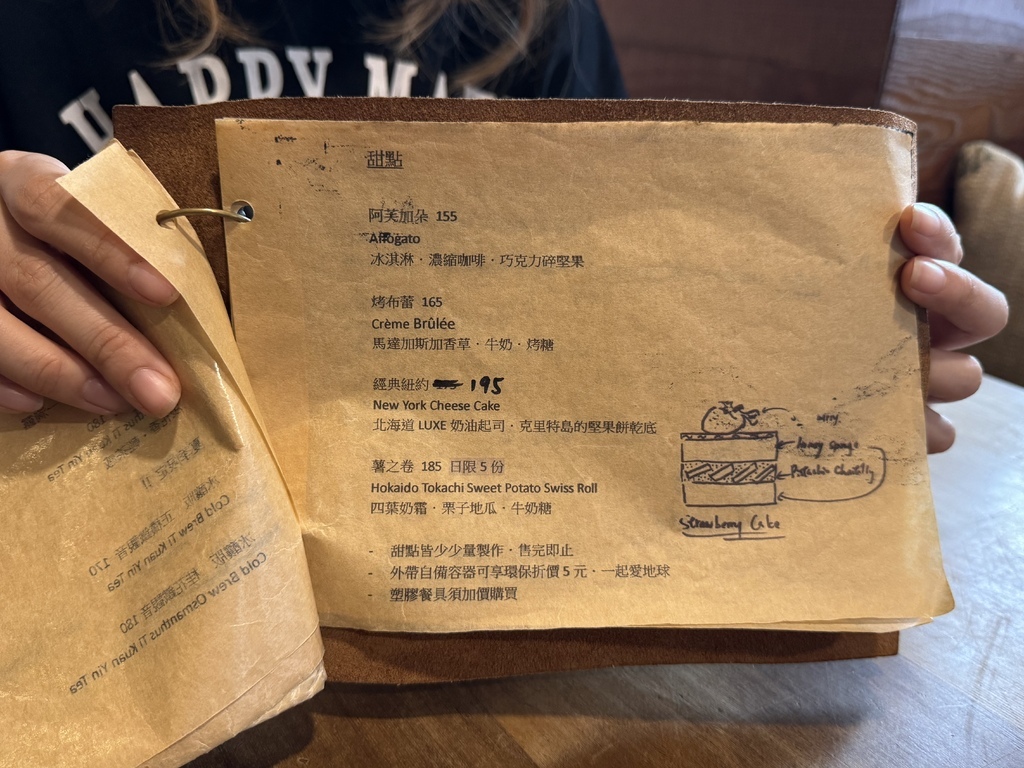 HAPPY MA
甜點
阿芙加朵 155
Affogato
冰淇淋．濃縮咖啡．巧克力碎堅果
烤布蕾 165
Crème Brûlée
馬達加斯加香草．牛奶．烤糖
經典紐約 195
New York Cheese Cake
北海道 LUXE 奶油起司．克里特島的堅果餅乾底
薯之卷 185 日限 5 份
Hokaido Tokachi Sweet Potato Swiss Roll
四葉奶霜．栗子地瓜．牛奶糖
- 甜點皆少少量製作．售完即止
- 外帶自備容器可享環保折價 5 元．一起愛地球
- 塑膠餐具須加價購買
honey sponge
Pistachio Chantilly
Strawberry Cake
Cold Brew Ti Kuan Yin Tea
170
Cold Brew Osmanthus Ti Kuan Yin Tea
180